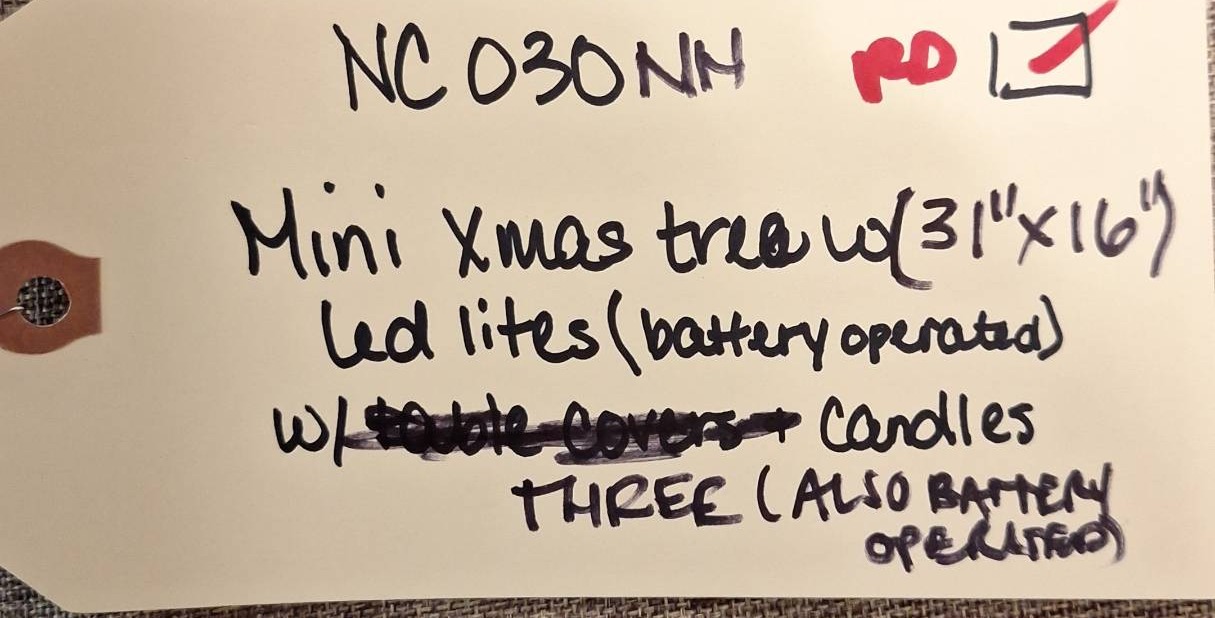 NC 030 NN RD ☑
Mini Xmas tree w (31"x16")
Led lites (battery operated)
w/ table covers + Candles
THREE (ALSO BATTERY
OPERATED)